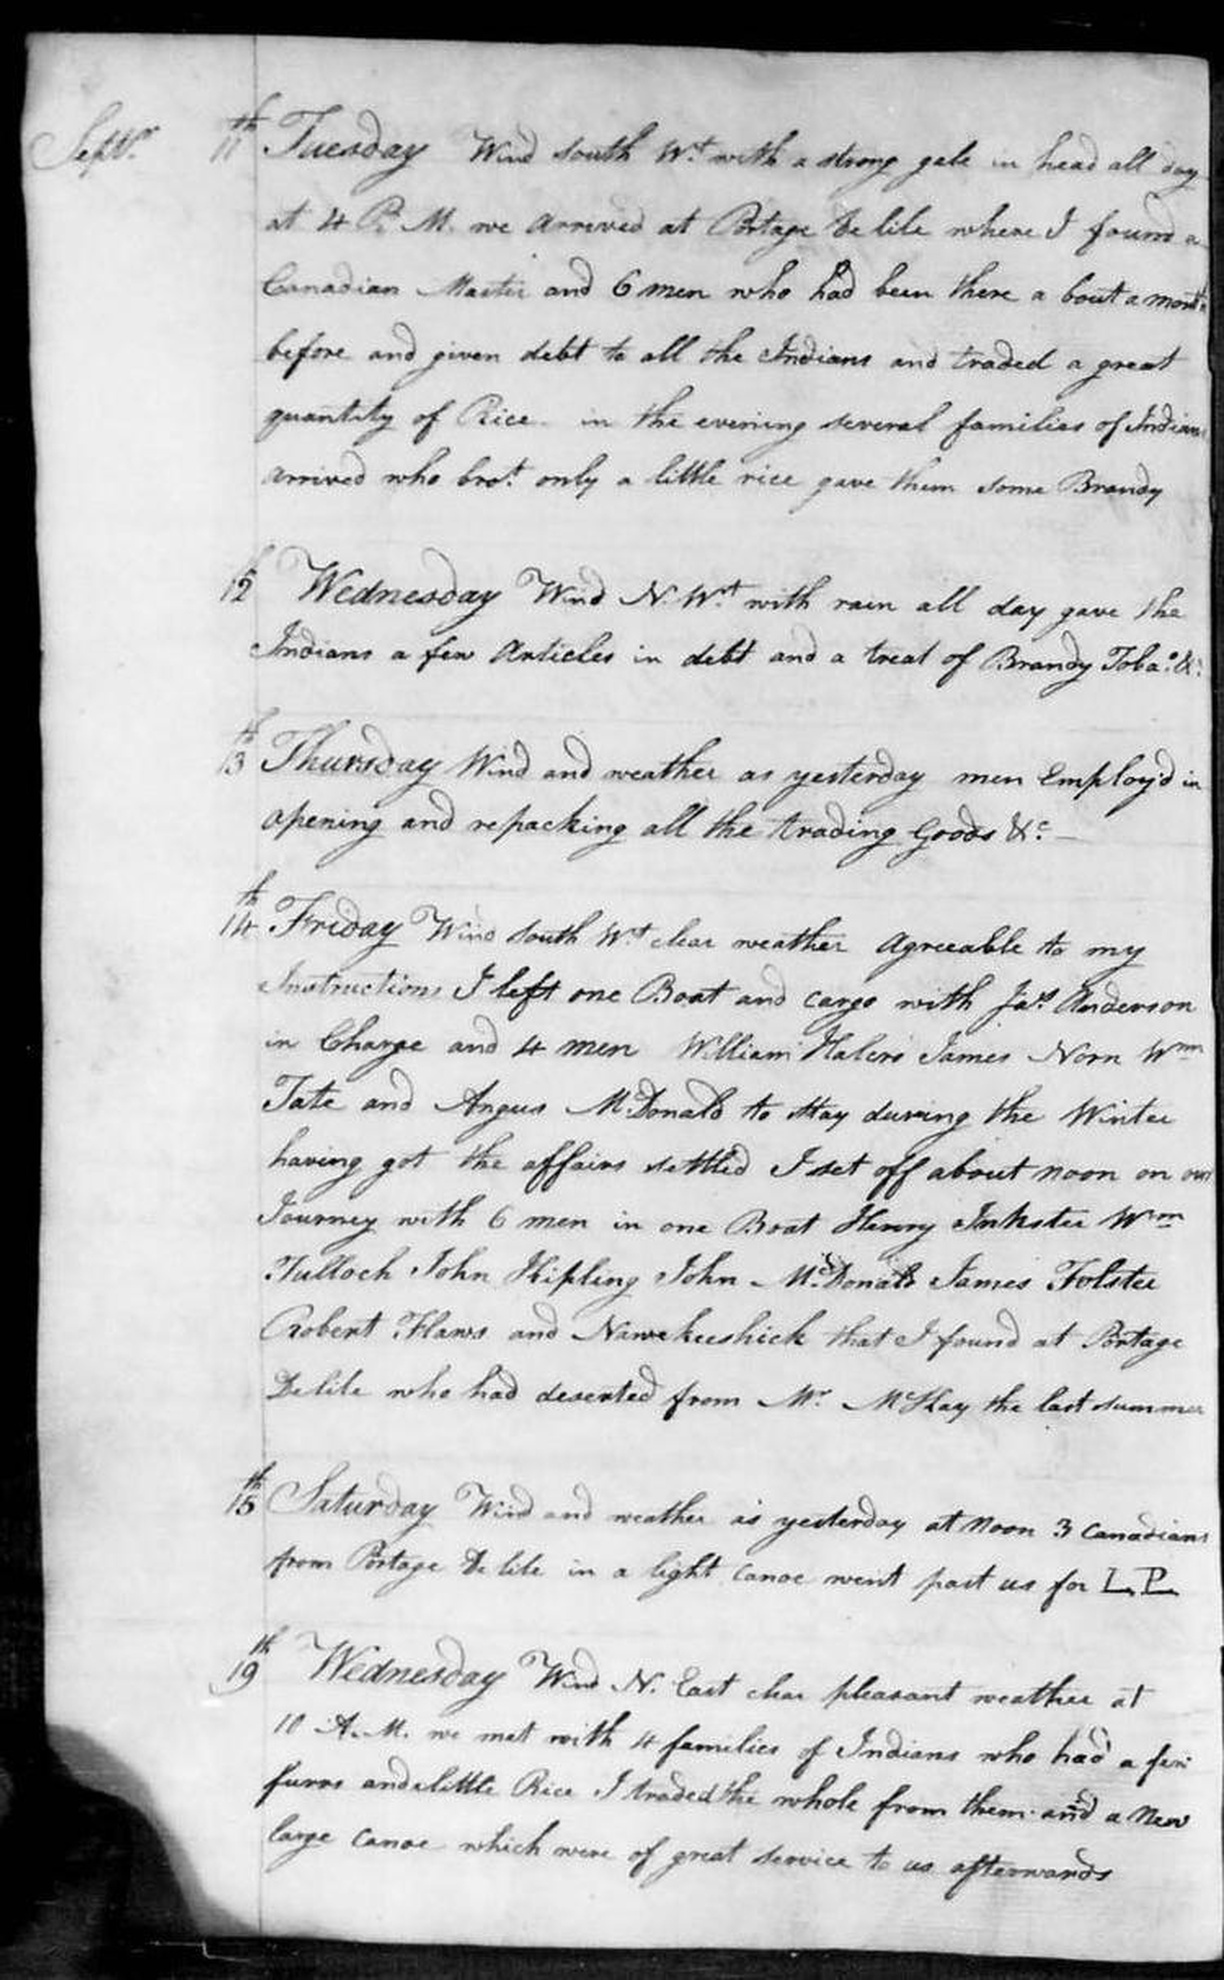 Septr. 11th Tuesday Wind south Wt. with a strong gale in head all day
at 4 P. M. we arrived at Portage De lile where I found a
Canadian Master and 6 men who had been there a bout a month
before and given debt to all the Indians and traded a great
quantity of Rice. in the evening several families of Indians
arrived who brot. only a little rice gave them some Brandy
12 Wednesday Wind N. Wt. with rain all day gave the
Indians a few Articles in debt and a treat of Brandy Toba.o &c
13th Thursday Wind and weather as yesterday men Employ'd in
opening and repacking all the trading Goods &c. —
14th Friday Wind south Wt. clear weather Agreeable to my
Instructions I left one Boat and cargo with Jas. Anderson
in Charge and 4 men William James Norn Wm
Tate and Angus McDonald to stay during the Winter
having got the affairs settled I set off about noon on our
Journey with 6 men in one Boat Henry Inkster Wm
Tulloch John Kipling John Mc.Donald James Folster
Robert Flaws and Nawekeeshick that I found at Portage
De lile who had deserted from Mr. McKay the last summer
15th Saturday Wind and weather as yesterday at Noon 3 Canadians
from Portage De lile in a light Canoe went past us for L. P.
19th Wednesday Wind N. East clear pleasant weather at
10 A. M. we met with 4 families of Indians who had a few
furrs and a little Rice I traded the whole from them and a New
large Canoe which were of great service to us afterwards